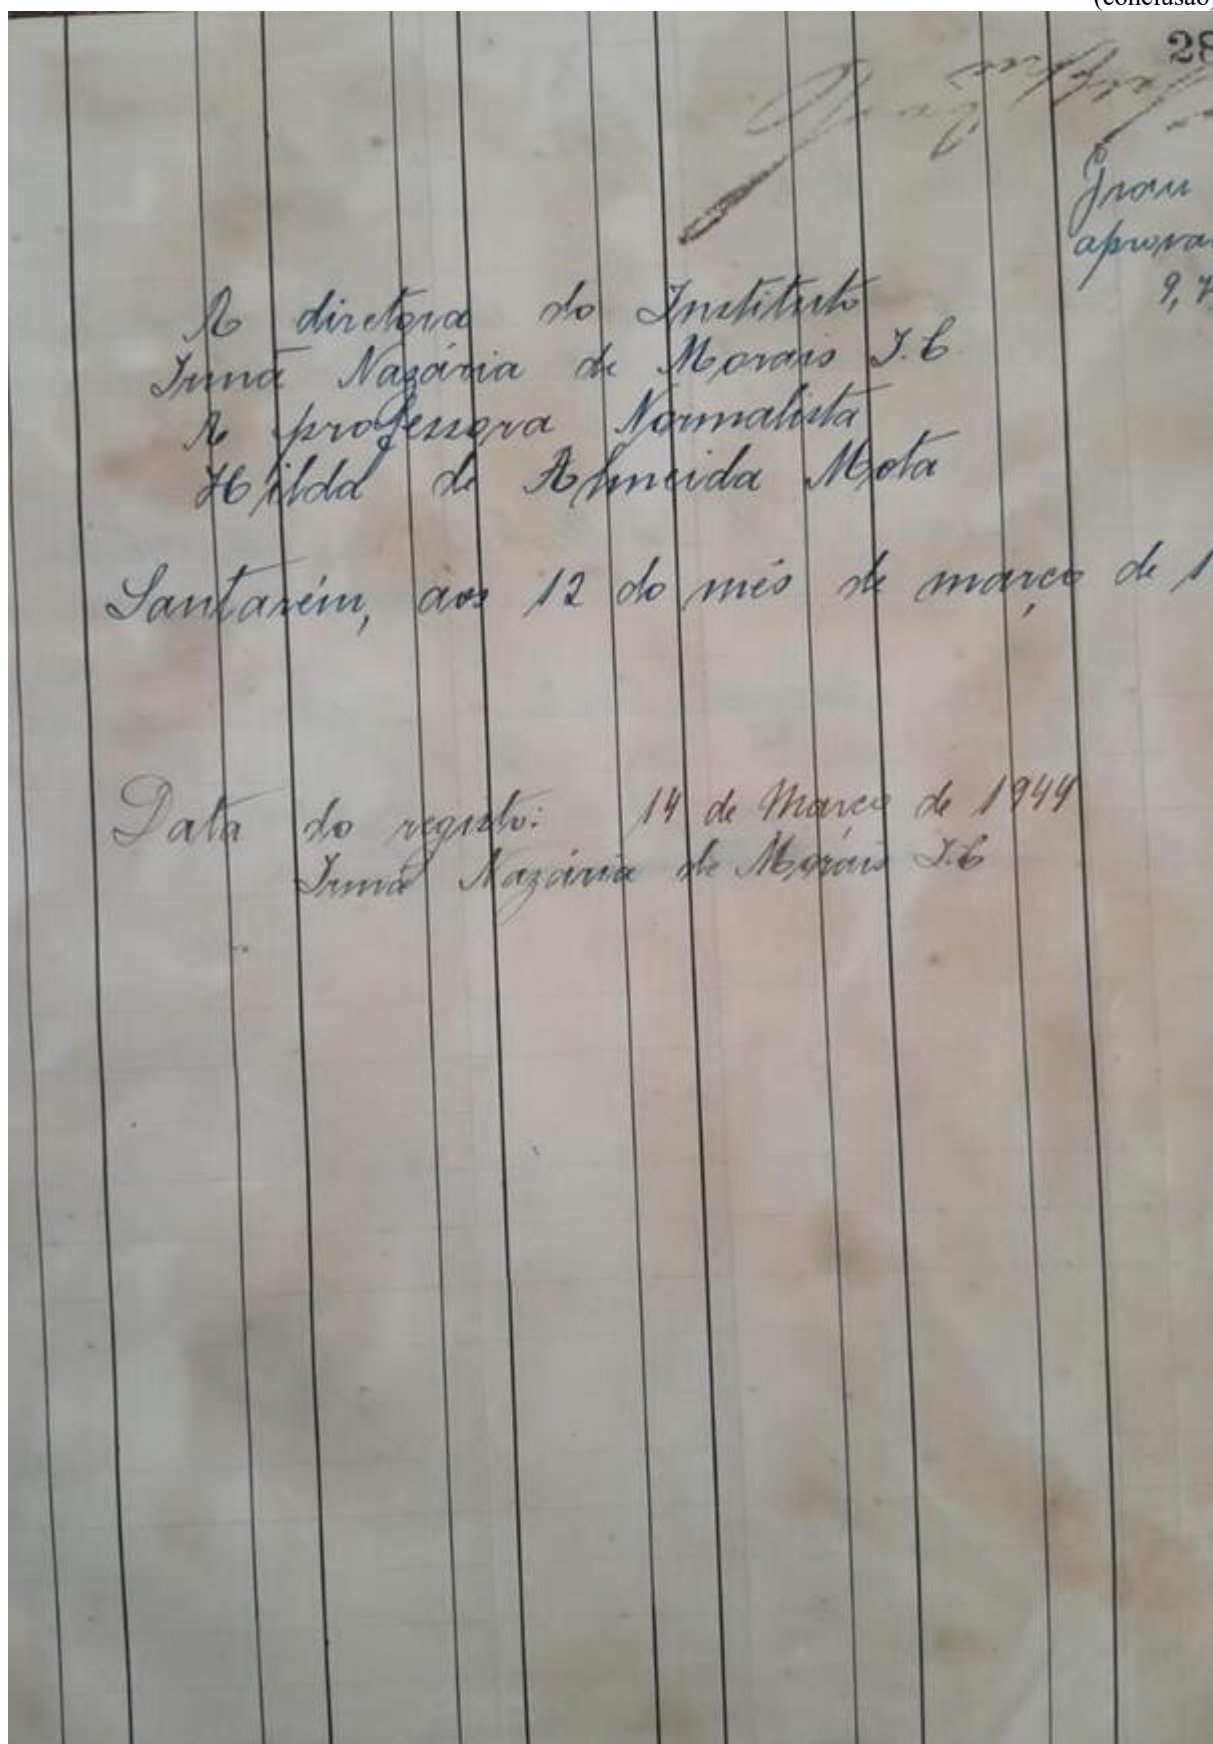 (conclusão)
28
Grau
aprova
9,7
A diretora do Instituto
Irmã Nazária de Morais I.C
A professora Normalista
Hilda de Almeida Mota
Santarém, aos 12 do mês de março de 1
Data do registo: 14 de Março de 1944
Irmã Nazária de Morais I.C